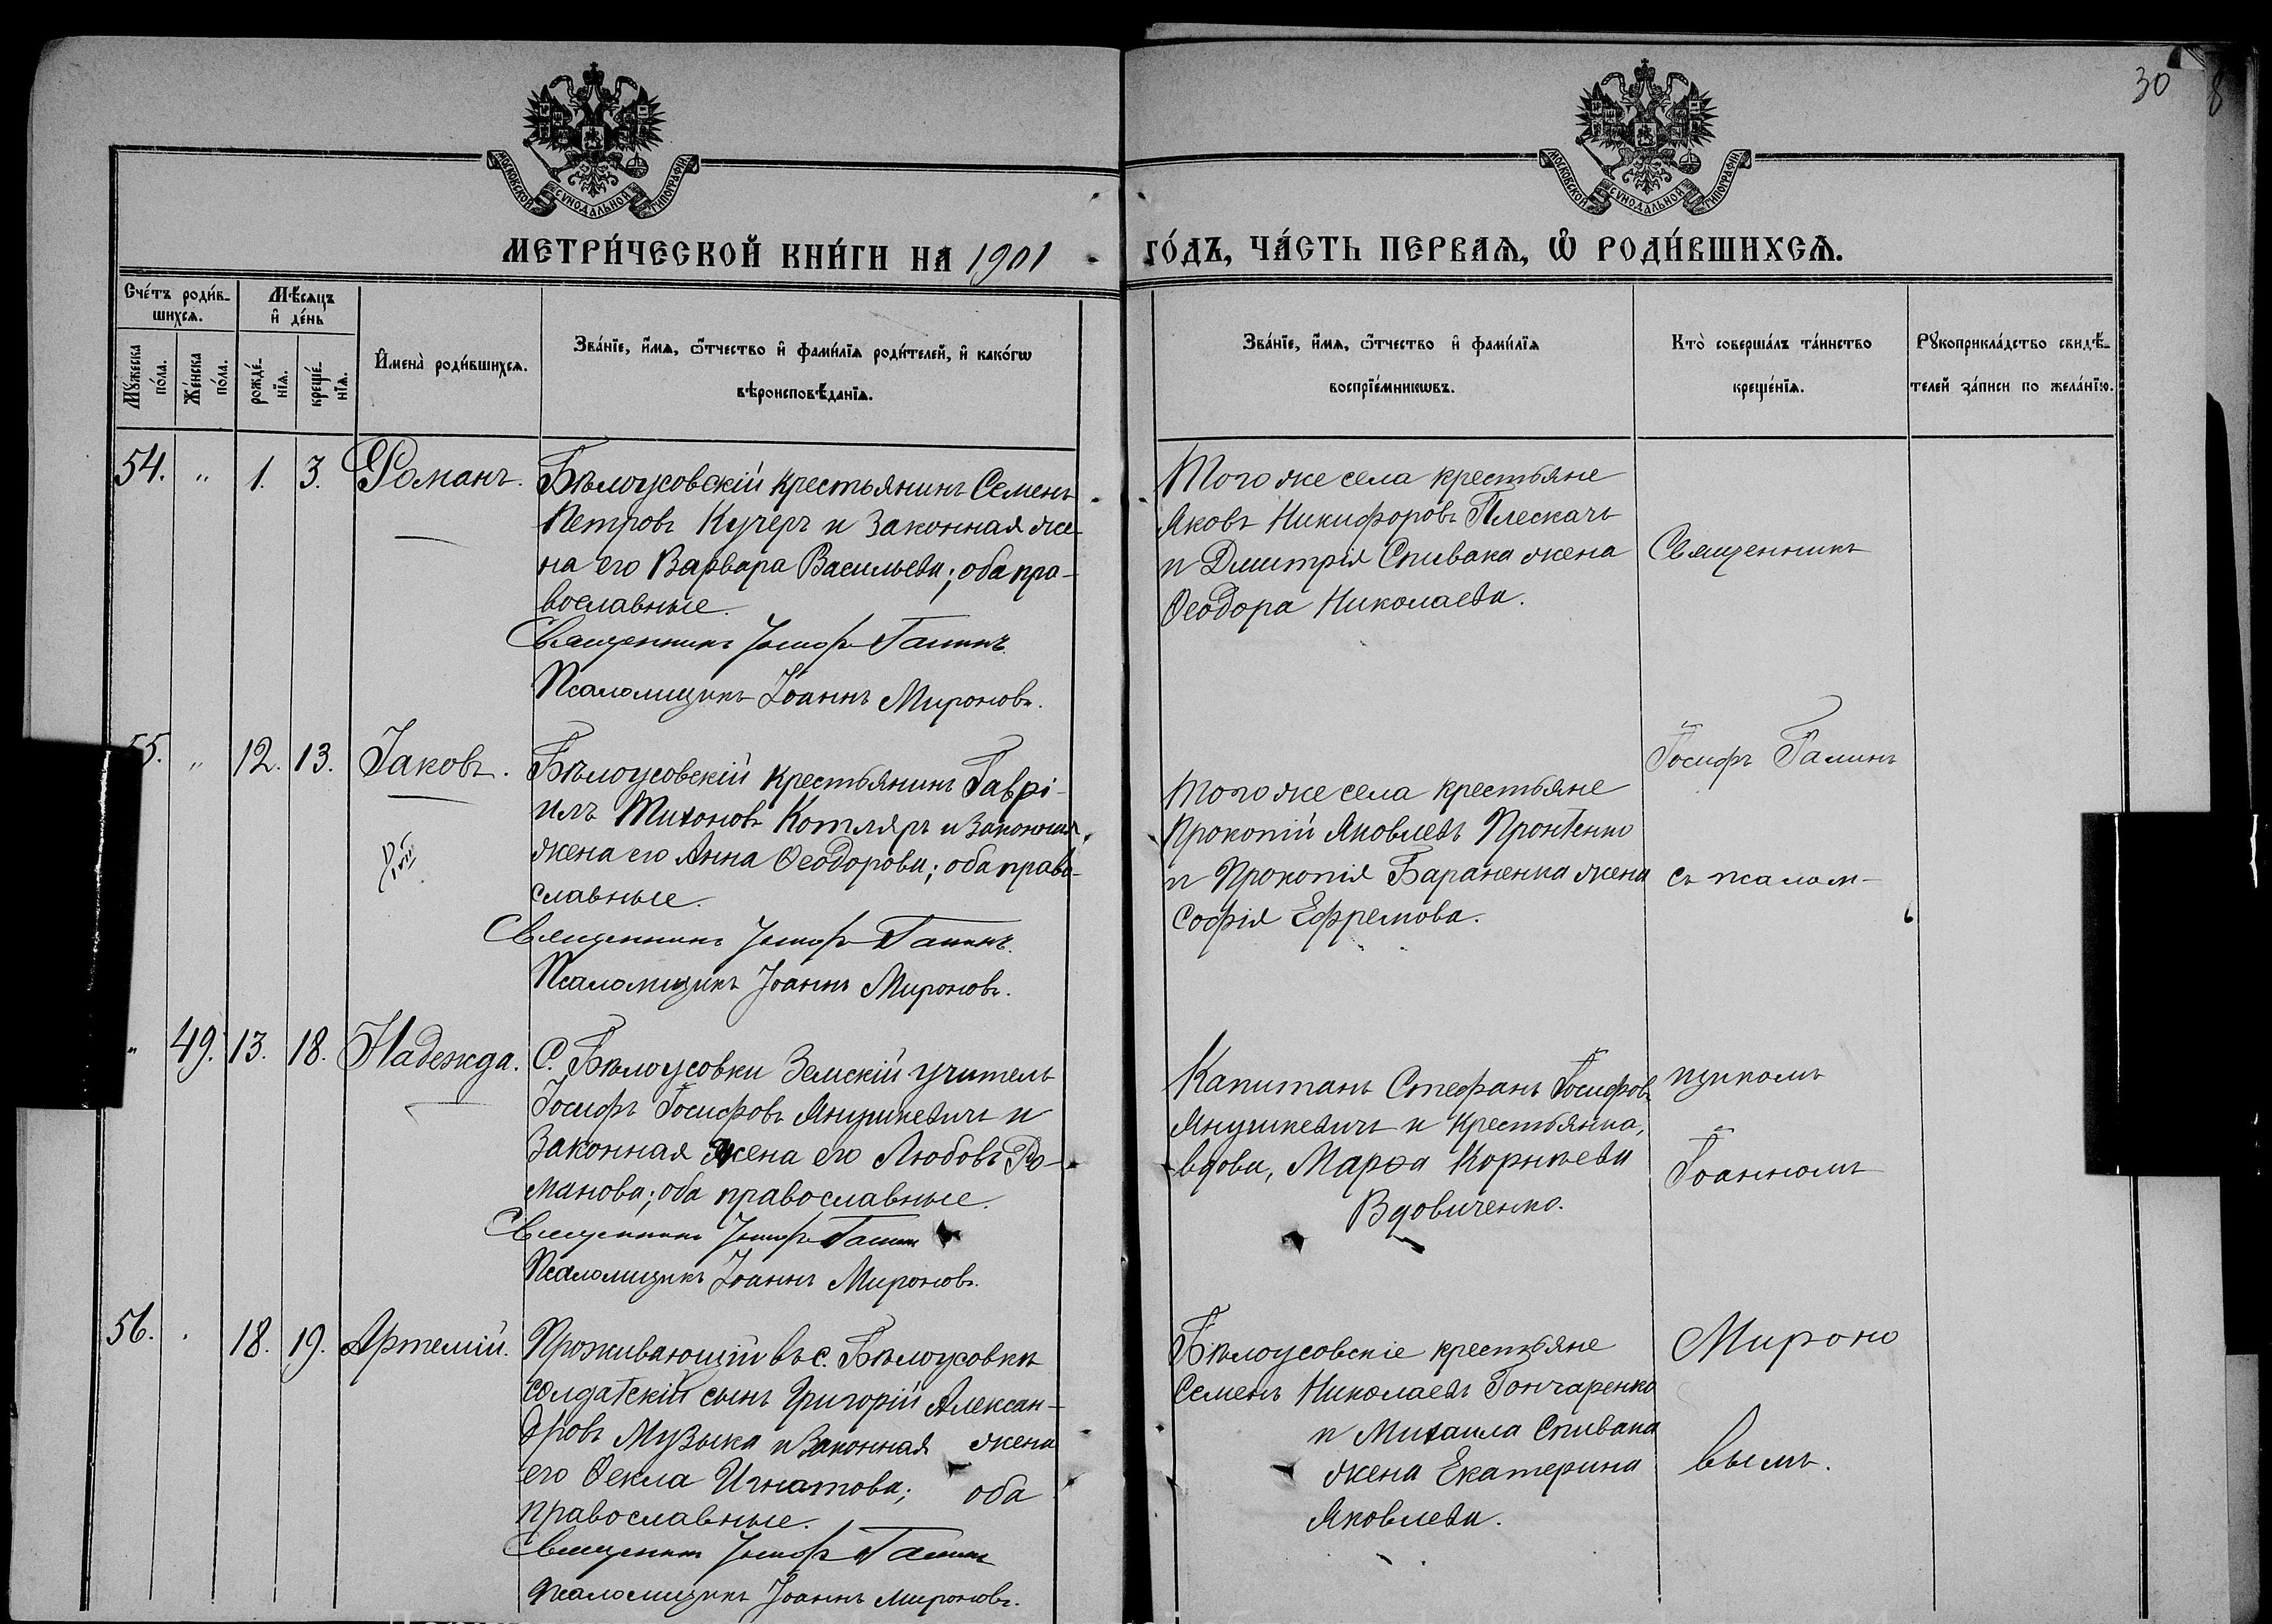 30
МОСКОВСКОЙ СѴНОДАЛЬНОЙ ТИПОГРАФІИ
МОСКОВСКОЙ СѴНОДАЛЬНОЙ ТИПОГРАФІИ
МЕТРИ́ЧЕСКОЙ КНИ́ГИ НА 1901
ГО́ДЪ, ЧА́СТЬ ПЕРВАѦ, Ѡ҆ РОДИ́ВШИХСѦ.
Сче́тъ роди́в-
шихсѧ.
Мꙋ́жеска
по́ла.
Же́нска
по́ла.
Мѣ́сяцъ
и҆ де́нь
рожде́-
нїѧ.
креще́-
нїѧ.
И҆мена̀ роди́вшихсѧ.
Зва́нїе, и҆́мѧ, ѻ҆́тчество и҆ фами́лїѧ роди́телей, и҆ како́гѡ
вѣроисповѣ́данїѧ.
Зва́нїе, и҆́мѧ, ѻ҆́тчество и҆ фами́лїѧ
воспрїе́мникѡвъ.
Кто̀ соверша́лъ та́инство
креще́нїѧ.
Рꙋкоприкла́дство свидѣ́-
телей за́писи по жела́нїю.
54. " 1. 3. Романъ.
Бѣлоусовскій крестьянинъ Семенъ
Петровъ Кучеръ и законная же-
на его Варвара Васильева; оба пра-
вославные.
Священникъ Іосифъ Галинъ.
Псаломщикъ Іоаннъ Мироновъ.
Того же села крестьяне
Яковъ Никифоровъ Плескачъ
и Дмитрія Спивака жена
Ѳеодора Николаева.
Священникъ
55. " 12. 13. Іаковъ.
Бѣлоусовскій крестьянинъ Гаврі-
илъ Тихоновъ Котляръ и законная
жена его Анна Ѳеодорова; оба право-
славные.
Священникъ Іосифъ Галинъ.
Псаломщикъ Іоаннъ Мироновъ.
Того же села крестьяне
Прокопій Яковлевъ Пронтенко
и Прокопія Бараненка жена
Софія Ефремова.
Іосифъ Галинъ
съ псалом-
" 49. 13. 18. Надежда.
С. Бѣлоусовки Земскій учитель
Іосифъ Іосифовъ Янушкевичъ и
законная жена его Любовь Ро-
манова; оба православные.
Священникъ Іосифъ Галинъ
Псаломщикъ Іоаннъ Мироновъ.
Капитанъ Стефанъ Іосифовъ
Янушкевичъ и крестьянка,
вдова, Марѳа Корнѣева
Вдовиченко.
щикомъ
Іоанномъ
56. . 18. 19. Артемій.
Проживающій въ с. Бѣлоусовкѣ
солдатскій сынъ Григорій Алексан-
дровъ Музыка и законная жена
его Ѳекла Игнатова; оба
православные.
Священникъ Іосифъ Галинъ
Псаломщикъ Іоаннъ Мироновъ.
Бѣлоусовскіе крестьяне
Семенъ Николаевъ Гончаренко
и Михаила Спивака
жена Екатерина
Яковлева.
Мироно
вымъ.